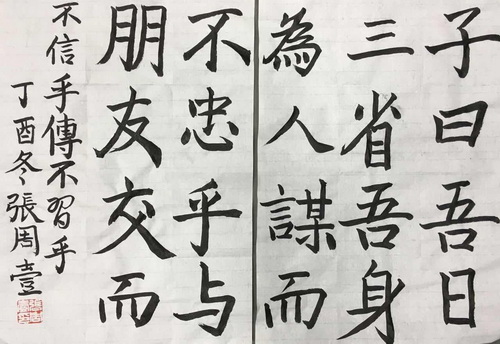 子曰吾日
三省吾身
為人謀而
不忠乎与
朋友交而
不信乎傳不習乎
丁酉冬張周壹